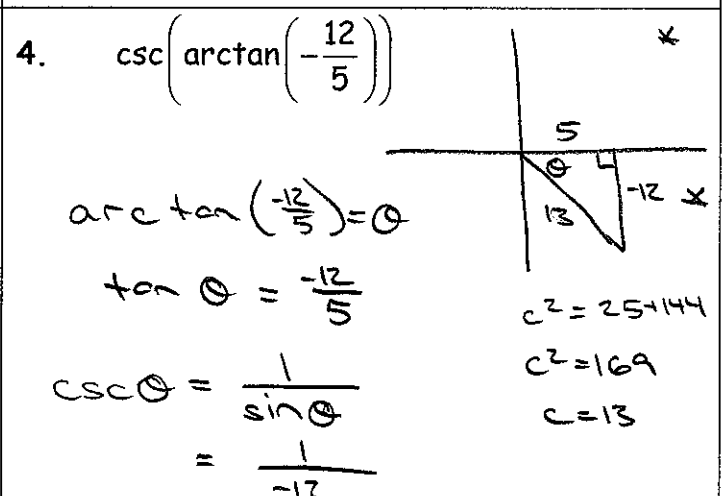 4. csc(arctan(-12/5))
*
5
θ
-12 *
13
arctan(-12/5)=θ
tan θ = -12/5
cscθ = 1/sinθ
= 1/-12
c² = 25+144
c² = 169
c = 13